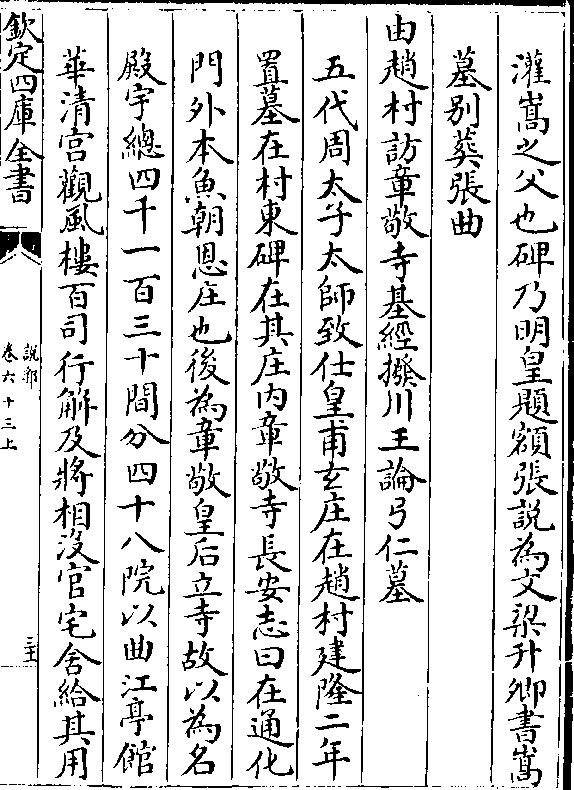 灌嵩之父也碑乃明皇題額張說為文梁升卿書嵩
墓别葬張曲
由趙村訪章敬寺基經撥川王論弓仁墓
五代周太子太師致仕皇甫玄庄在趙村建隆二年
置墓在村東碑在其庄内章敬寺長安志曰在通化
門外本魚朝恩庄也後為章敬皇后立寺故以為名
殿宇總四千一百三十間分四十八院以曲江亭館
華清宫觀風樓百司行解及將相沒官宅舍給其用
欽定四庫全書
說郛
卷六十三上